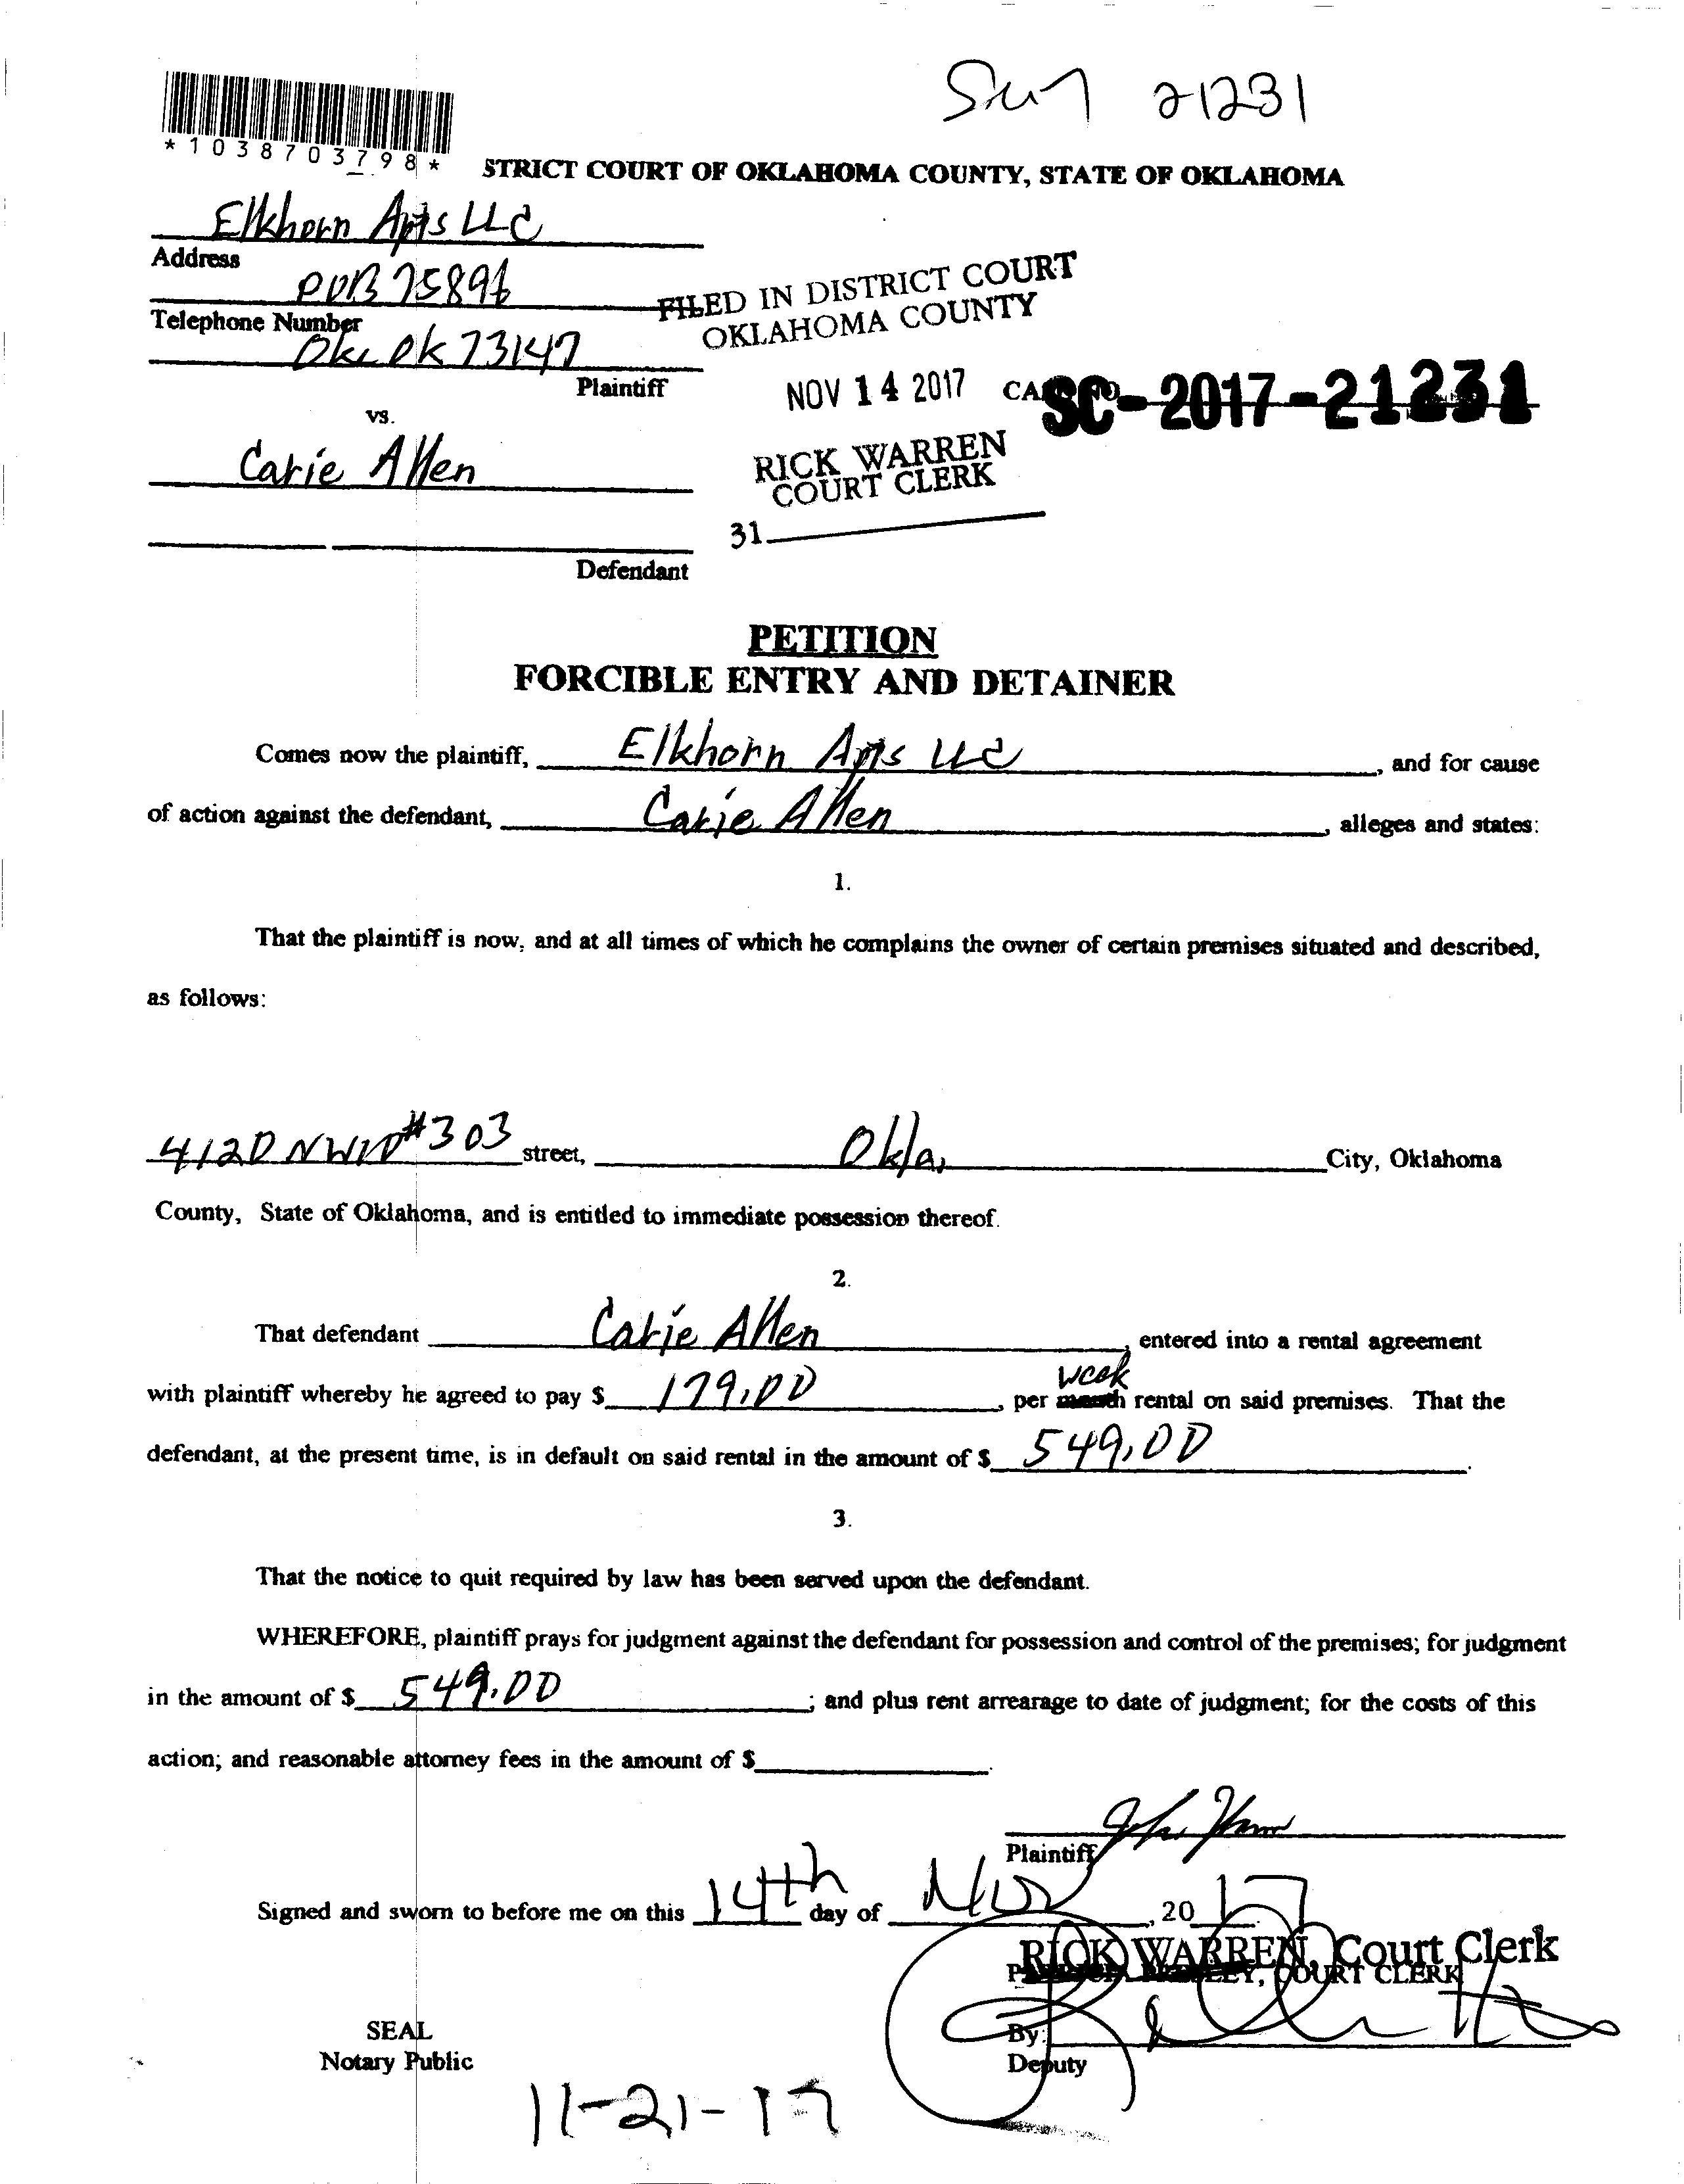 Sm 21231
*1038703798*
STRICT COURT OF OKLAHOMA COUNTY, STATE OF OKLAHOMA
Elkhorn Apts LLC
Address
POB 75896
Telephone Number
Okc Ok 73147
Plaintiff
FILED IN DISTRICT COURT
OKLAHOMA COUNTY
NOV 14 2017
SC-2017-21231
vs.
Carie Allen
RICK WARREN
COURT CLERK
31
Defendant
PETITION
FORCIBLE ENTRY AND DETAINER
Comes now the plaintiff, Elkhorn Apts LLC, and for cause
of action against the defendant, Carie Allen, alleges and states:
1.
That the plaintiff is now, and at all times of which he complains the owner of certain premises situated and described,
as follows:
4120 NW10 #303 street, Okla. City, Oklahoma
County, State of Oklahoma, and is entitled to immediate possession thereof.
2.
That defendant Carie Allen, entered into a rental agreement
week
with plaintiff whereby he agreed to pay $ 179.00, per month rental on said premises. That the
defendant, at the present time, is in default on said rental in the amount of $ 549.00.
3.
That the notice to quit required by law has been served upon the defendant.
WHEREFORE, plaintiff prays for judgment against the defendant for possession and control of the premises; for judgment
in the amount of $ 549.00; and plus rent arrearage to date of judgment; for the costs of this
action; and reasonable attorney fees in the amount of $.
Plaintiff
Signed and sworn to before me on this 14th day of Nov, 2017
RICK WARREN, Court Clerk
COURT CLERK
SEAL
By:
Notary Public
Deputy
11-21-17